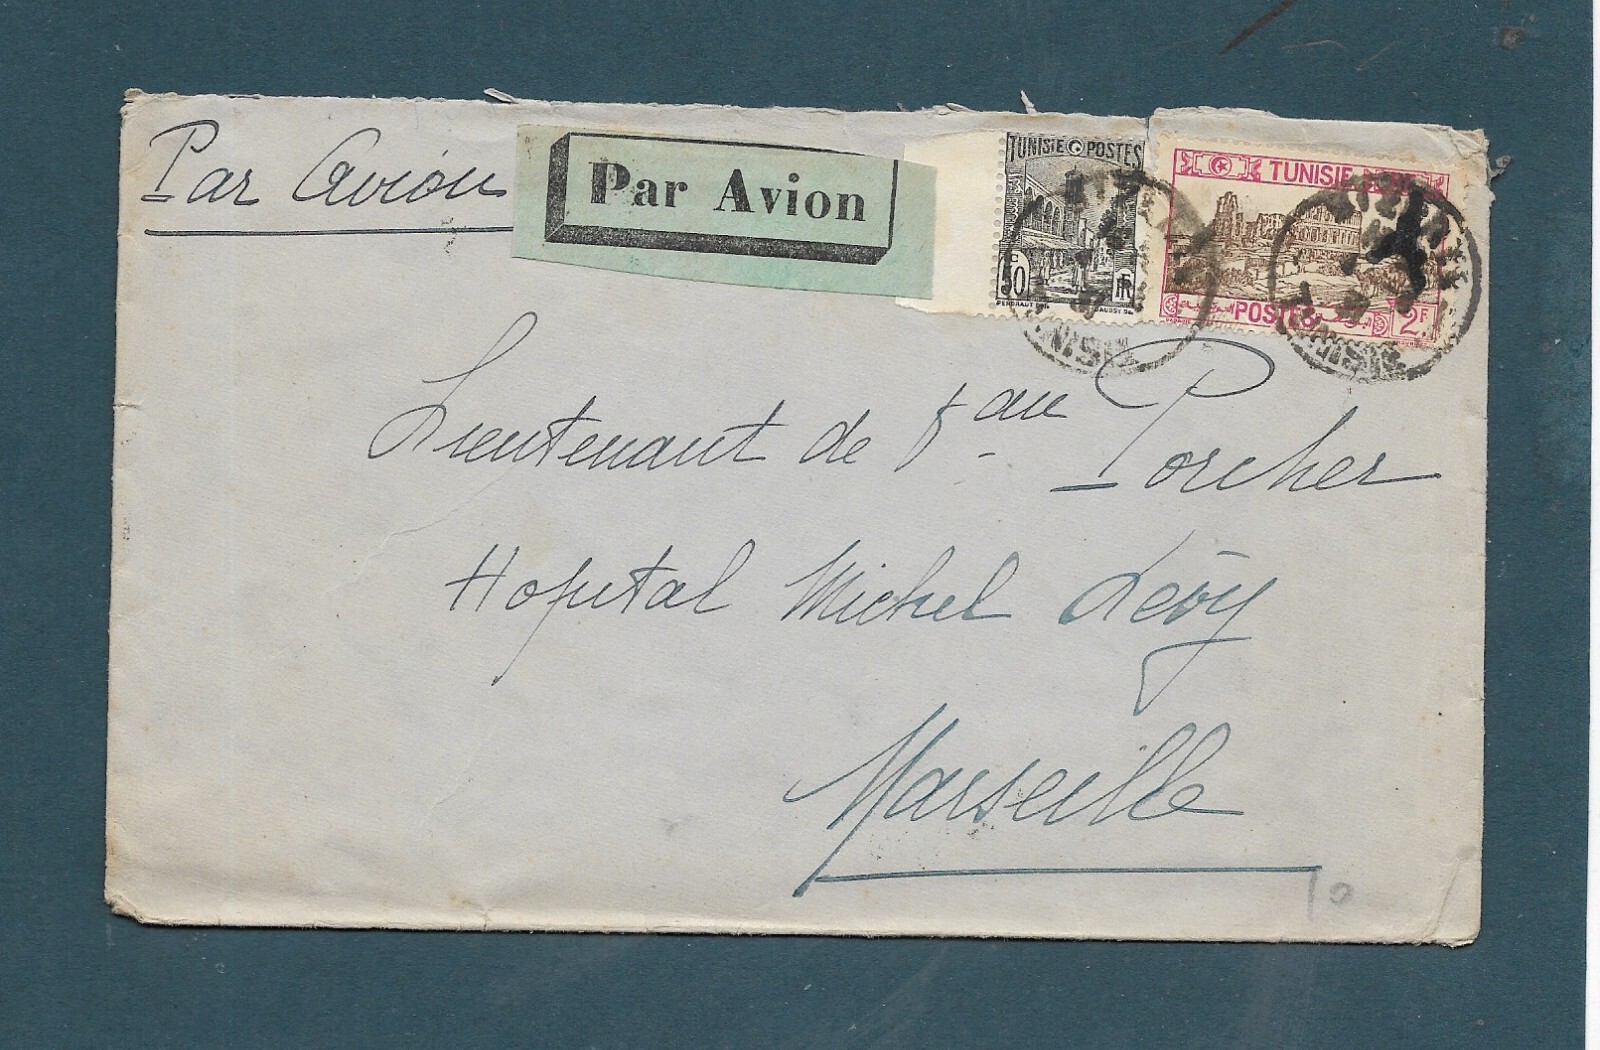 Par Avion
Par Avion
TUNISIE POSTES
50 c
RF
TUNISIE
POSTES
2F
Lieutenant de Vau Porcher
Hopital Michel Lévy
Marseille
10